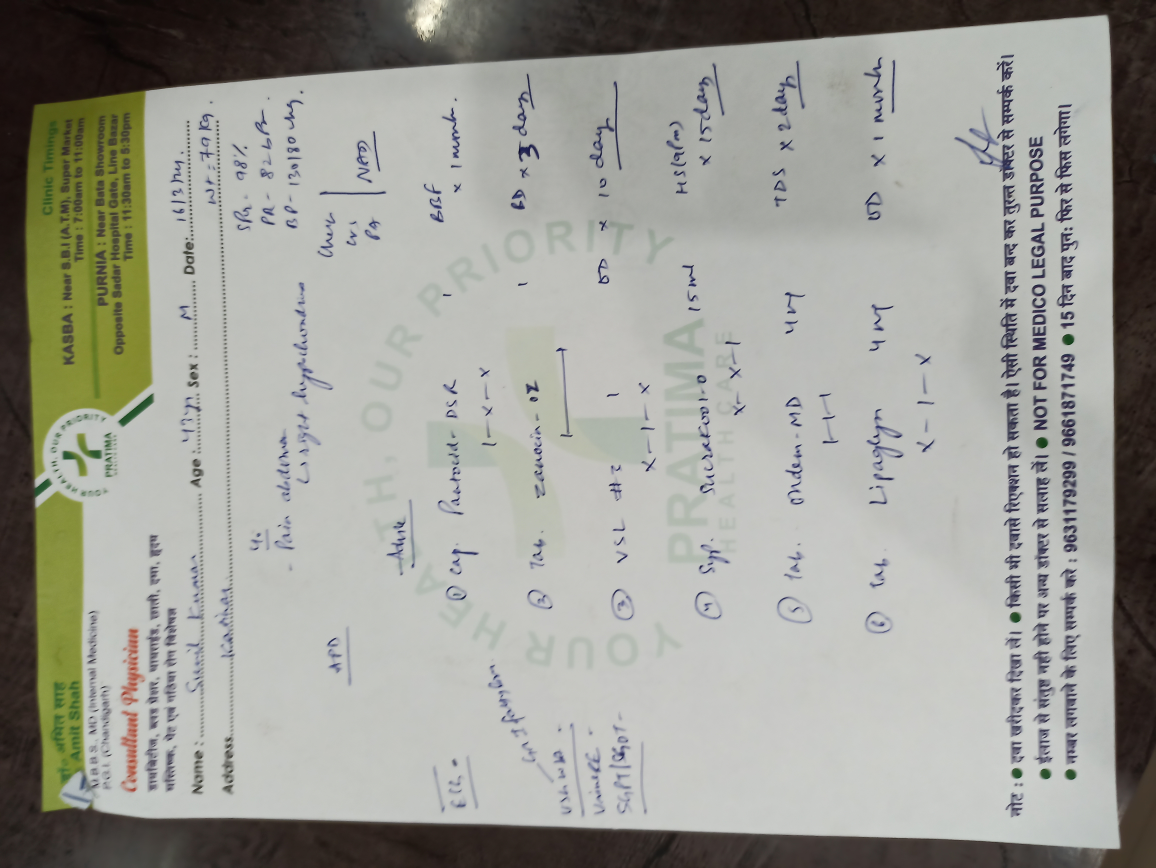 डॉ० अमित साह
Amit Shah
M.B.B.S., MD (Internal Medicine)
P.G.I. (Chandigarh)
Consultant Physician
डायबिटीज, ब्लड प्रेशर, थायराईड, छाती, दमा, हृदय
मस्तिष्क, पेट एवं गठिया रोग विशेषज्ञ
YOUR HEALTH, OUR PRIORITY
PRATIMA
HEALTH CARE
Clinic Timings
KASBA : Near S.B.I (A.T.M), Super Market
Time : 7:00am to 11:00am
PURNIA : Near Bata Showroom
Opposite Sadar Hospital Gate, Line Bazar
Time : 11:30am to 5:30pm
Name : Sunil Kumar Age : 43yr Sex : M Date: 16/3/24.
Address Katihar Wt = 79 Kg.
SPO2 - 98%
PR - 82 bpm.
BP - 130/80 mmHg.
Chest
CVS
PA
NAD
- Pain abdomen
Right hypochondrium
APD
Advise
① Cap. Pantocid-DSR 1 BBF
1-x-x x 1 month.
② Tab. Zanocin-OZ 1 BD x 3 days
③ VSL #3 1 OD x 10 days
x-1-x
④ Syp. Sucrafil-O 15 ml HS (9pm)
x-x-1 x 15 days
⑤ Tab. Ondem-MD 4 mg TDS x 2 days
1-1-1
⑥ Tab. Lipaglyn 4 mg OD x 1 month
x-1-x
ECG
USG W/A -
Urine RE -
SGPT/SGOT -
नोट : ● दवा खरीदकर दिखा लें। ● किसी भी दवासे रिएक्शन हो सकता है। ऐसी स्थिति में दवा बन्द कर तुरन्त डॉक्टर से सम्पर्क करें।
● ईलाज से संतुष्ट नही होने पर अन्य डॉक्टर से सलाह लें। ● NOT FOR MEDICO LEGAL PURPOSE
● नम्बर लगवाने के लिए सम्पर्क करे : 9631179299 / 9661871749 ● 15 दिन बाद पुन: फिर से फिस लगेगा।